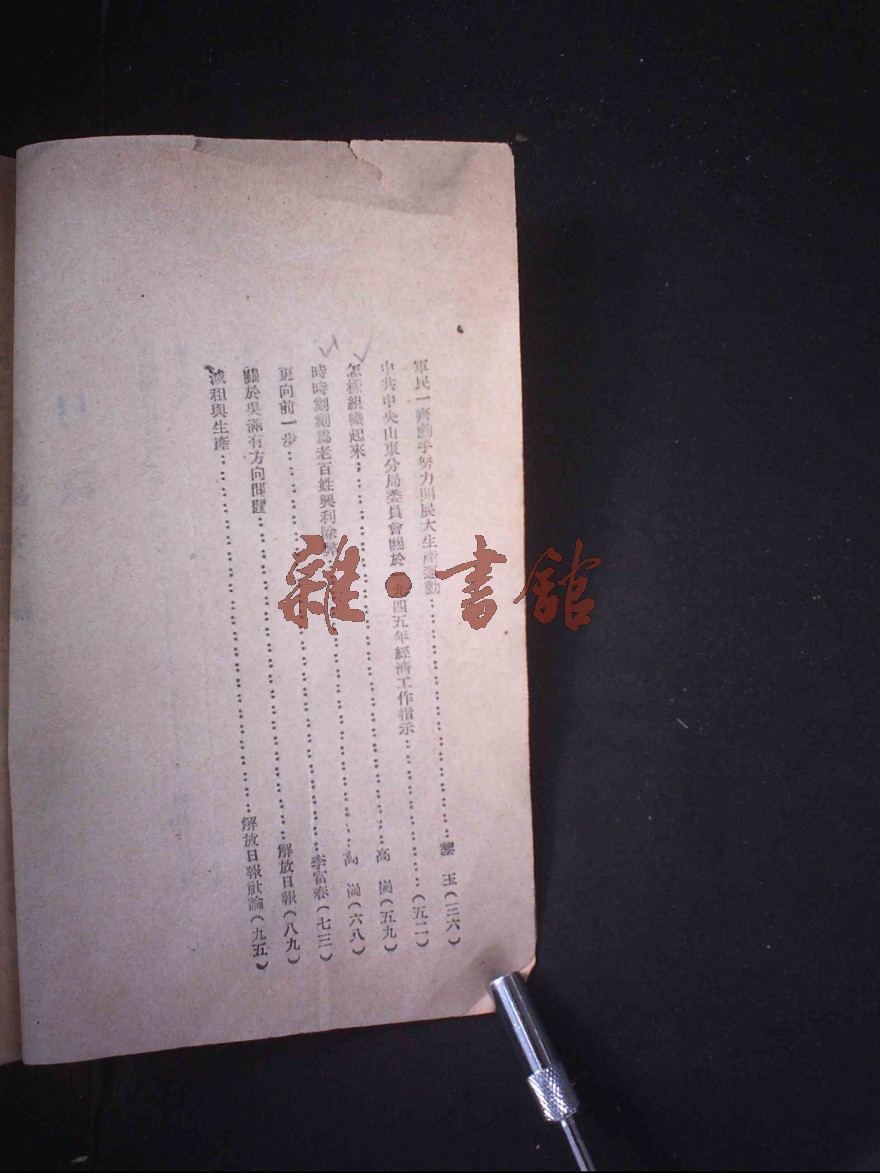 軍民一齊動手努力開展大生產運動……………………黎 玉(三六)
中共中央山東分局委員會關於一九四五年經濟工作指示……………………(五二)
怎樣組織起來……………………高 崗(五九)
時時刻刻爲老百姓興利除弊……………………高 崗(六八)
更向前一步……………………李富春(七三)
關於吳滿有方向問題……………………解放日報(八九)
減租與生產……………………解放日報社論(九五)
雜·書館